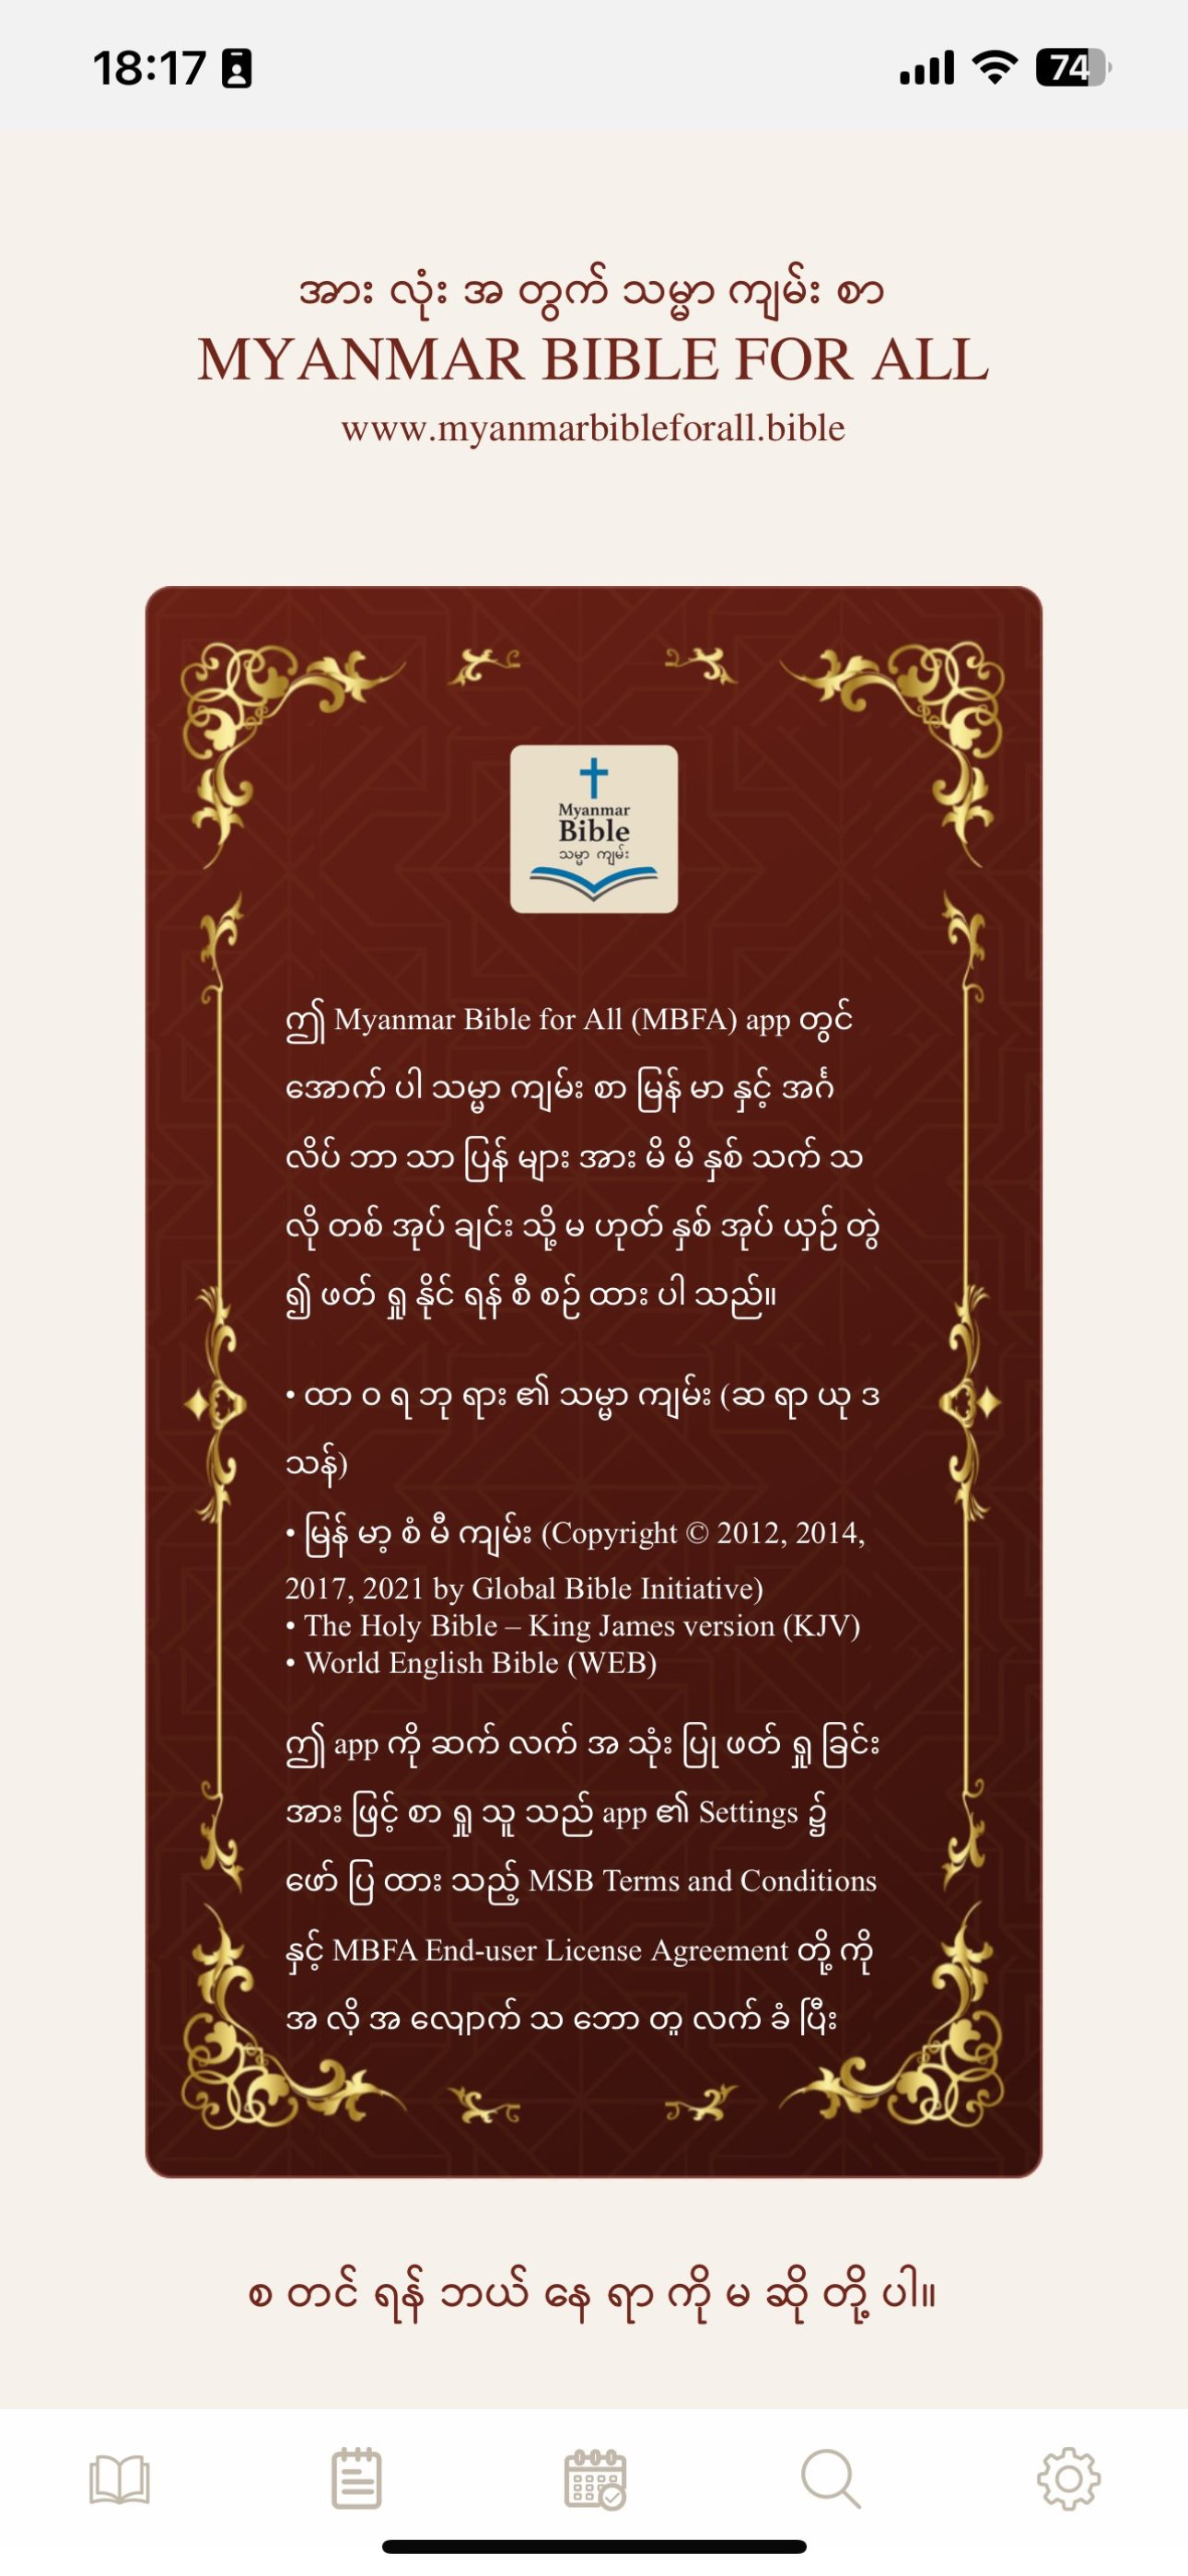 18:17
74
အား လုံး အ တွက် သမ္မာ ကျမ်း စာ
MYANMAR BIBLE FOR ALL
www.myanmarbibleforall.bible
Myanmar
Bible
သမ္မာ ကျမ်း
ဤ Myanmar Bible for All (MBFA) app တွင်
အောက် ပါ သမ္မာ ကျမ်း စာ မြန် မာ နှင့် အင်္ဂ
လိပ် ဘာ သာ ပြန် များ အား မိ မိ နှစ် သက် သ
လို တစ် အုပ် ချင်း သို့ မ ဟုတ် နှစ် အုပ် ယှဉ် တွဲ
၍ ဖတ် ရှု နိုင် ရန် စီ စဉ် ထား ပါ သည်။
• ထာ ဝ ရ ဘု ရား ၏ သမ္မာ ကျမ်း (ဆ ရာ ယု ဒ
သန်)
• မြန် မာ့ စံ မီ ကျမ်း (Copyright © 2012, 2014,
2017, 2021 by Global Bible Initiative)
• The Holy Bible – King James version (KJV)
• World English Bible (WEB)
ဤ app ကို ဆက် လက် အ သုံး ပြု ဖတ် ရှု ခြင်း
အား ဖြင့် စာ ရှု သူ သည် app ၏ Settings ၌
ဖော် ပြ ထား သည့် MSB Terms and Conditions
နှင့် MBFA End-user License Agreement တို့ ကို
အ လို အ လျောက် သ ဘော တူ လက် ခံ ပြီး
စ တင် ရန် ဘယ် နေ ရာ ကို မ ဆို တို့ ပါ။